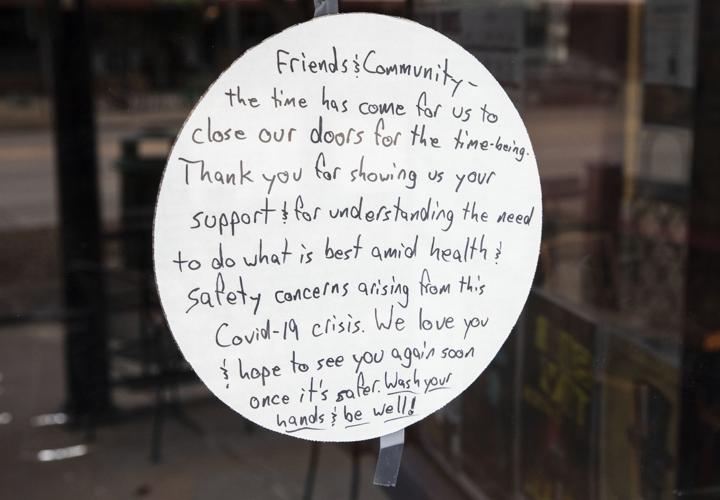 Friends & Community-
the time has come for us to
close our doors for the time-being.
Thank you for showing us your
support & for understanding the need
to do what is best amid health &
safety concerns arising from this
Covid-19 crisis. We love you
& hope to see you again soon
once it's safer. Wash your
hands & be well!